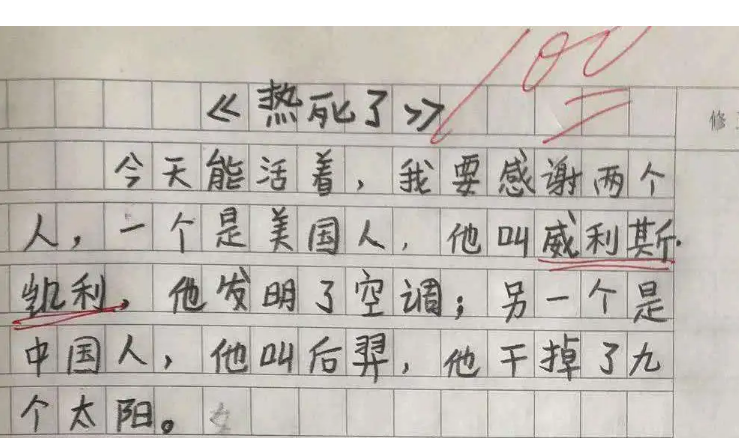 100
《热死了》
修
今天能活着，我要感谢两个
人，一个是美国人，他叫威利斯·
凯利，他发明了空调；另一个是
中国人，他叫后羿，他干掉了九
个太阳。